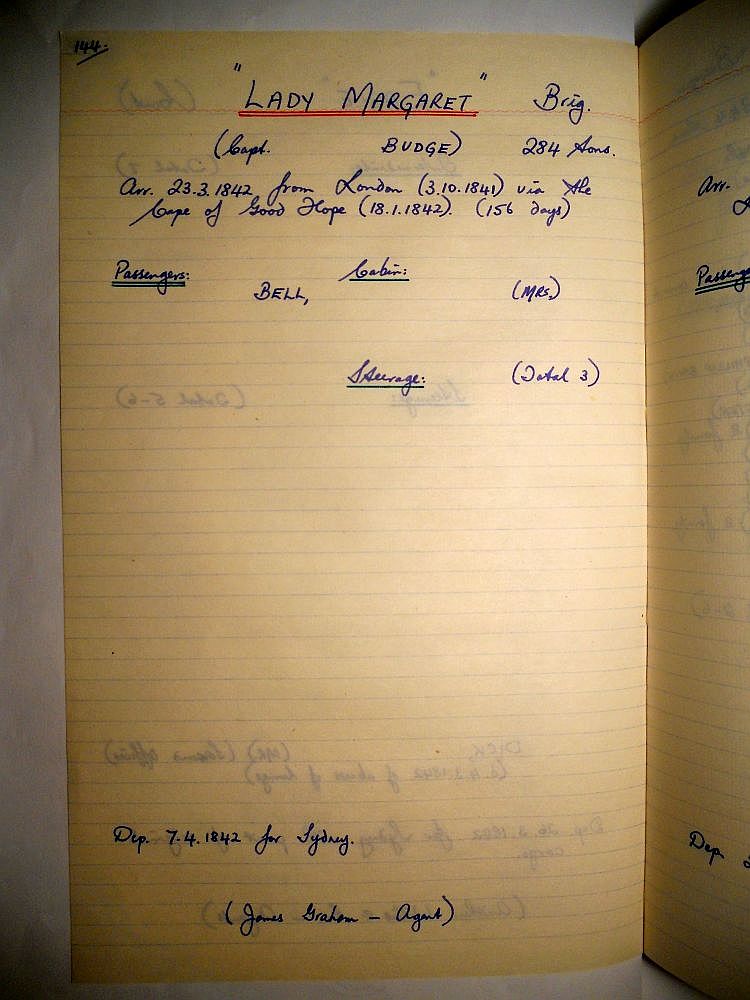 144.
"LADY MARGARET" Brig.
(Capt. BUDGE) 284 tons.
Arr. 23.3.1842 from London (3.10.1841) via the
Cape of Good Hope (18.1.1842). (156 days)
Passengers: Cabin:
BELL, (MRS.)
Steerage: (Total 3)
Dep. 7.4.1842 for Sydney.
(James Graham – Agent)
Arr.
Passeng
Dep